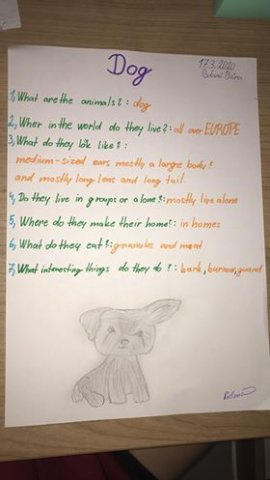 Dog
17.3.2020
1, What are the animals?: dog
2, Wher in the world do they live?: all over EUROPE
3, What do they look like?:
medium-sized ears mostly a large body?
and mostly long legs and long tail.
4, Do they live in groups or alone?: mostly live alone
5, Where do they make their home?: in homes
6, What do they eat?: granules and meat
7, What interesting things do they do?: bark, burrow, guard